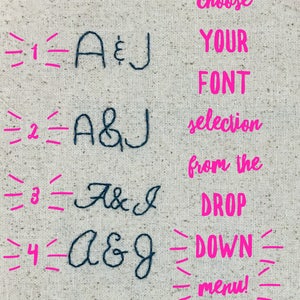 choose
1 A&J YOUR
FONT
2 A&J selection
from the
3 A&J DROP
4 A&J DOWN
menu!